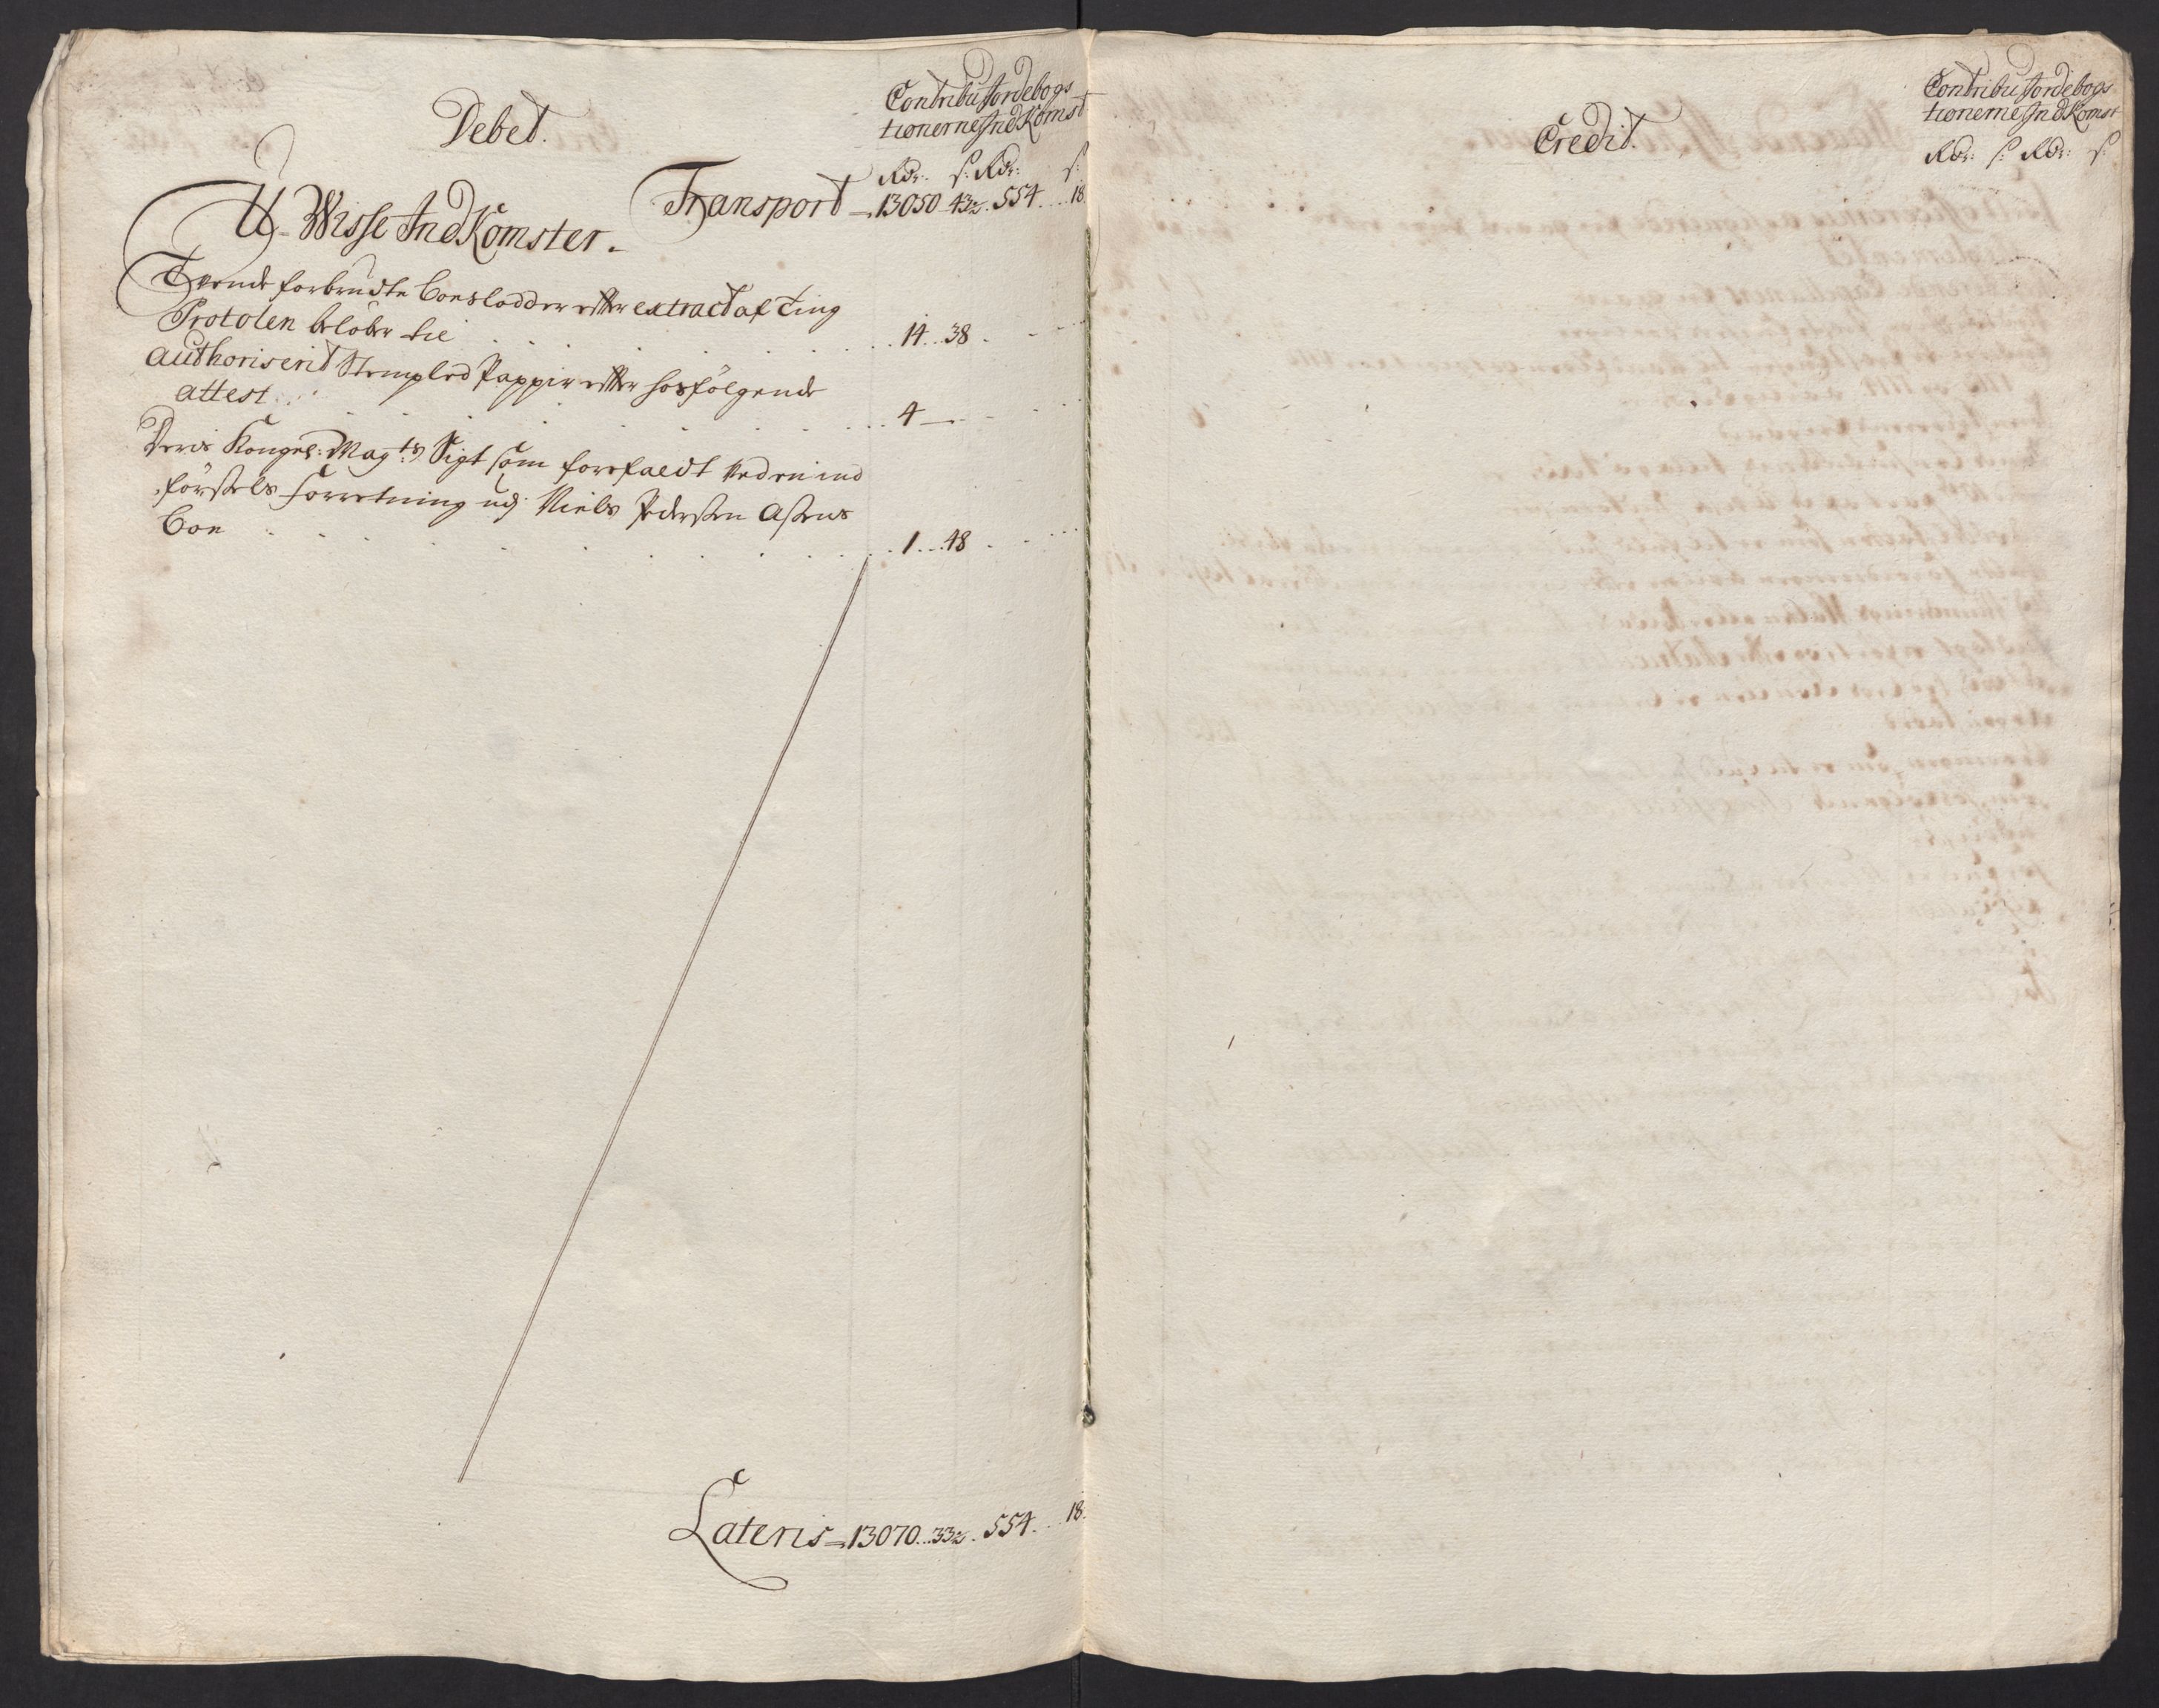 Debet.
Contribu Jordebogs
tionerne IndKomst
Rdr: s: Rdr: s:
Transport = 13050 43½. 554. 18
U-Wisse IndKomster.
Tvende forbrudte Boeslodder efter extract af Ting
Protolen beløber sig . . . 14..38.
authoriserit Stempled Pappir efter hosfølgende
attest . . . 4 —
Deris Kongel: Mag:ts Sigt som forefaldt ved en ind
førsels forretning udj Niels Pedersen
Boe . . . 1...48.
Lateris = 13070..33½. 554. 18.
Credit.
Contribu Jordebogs
tionerne IndKomst
Rdr: s: Rdr: s: